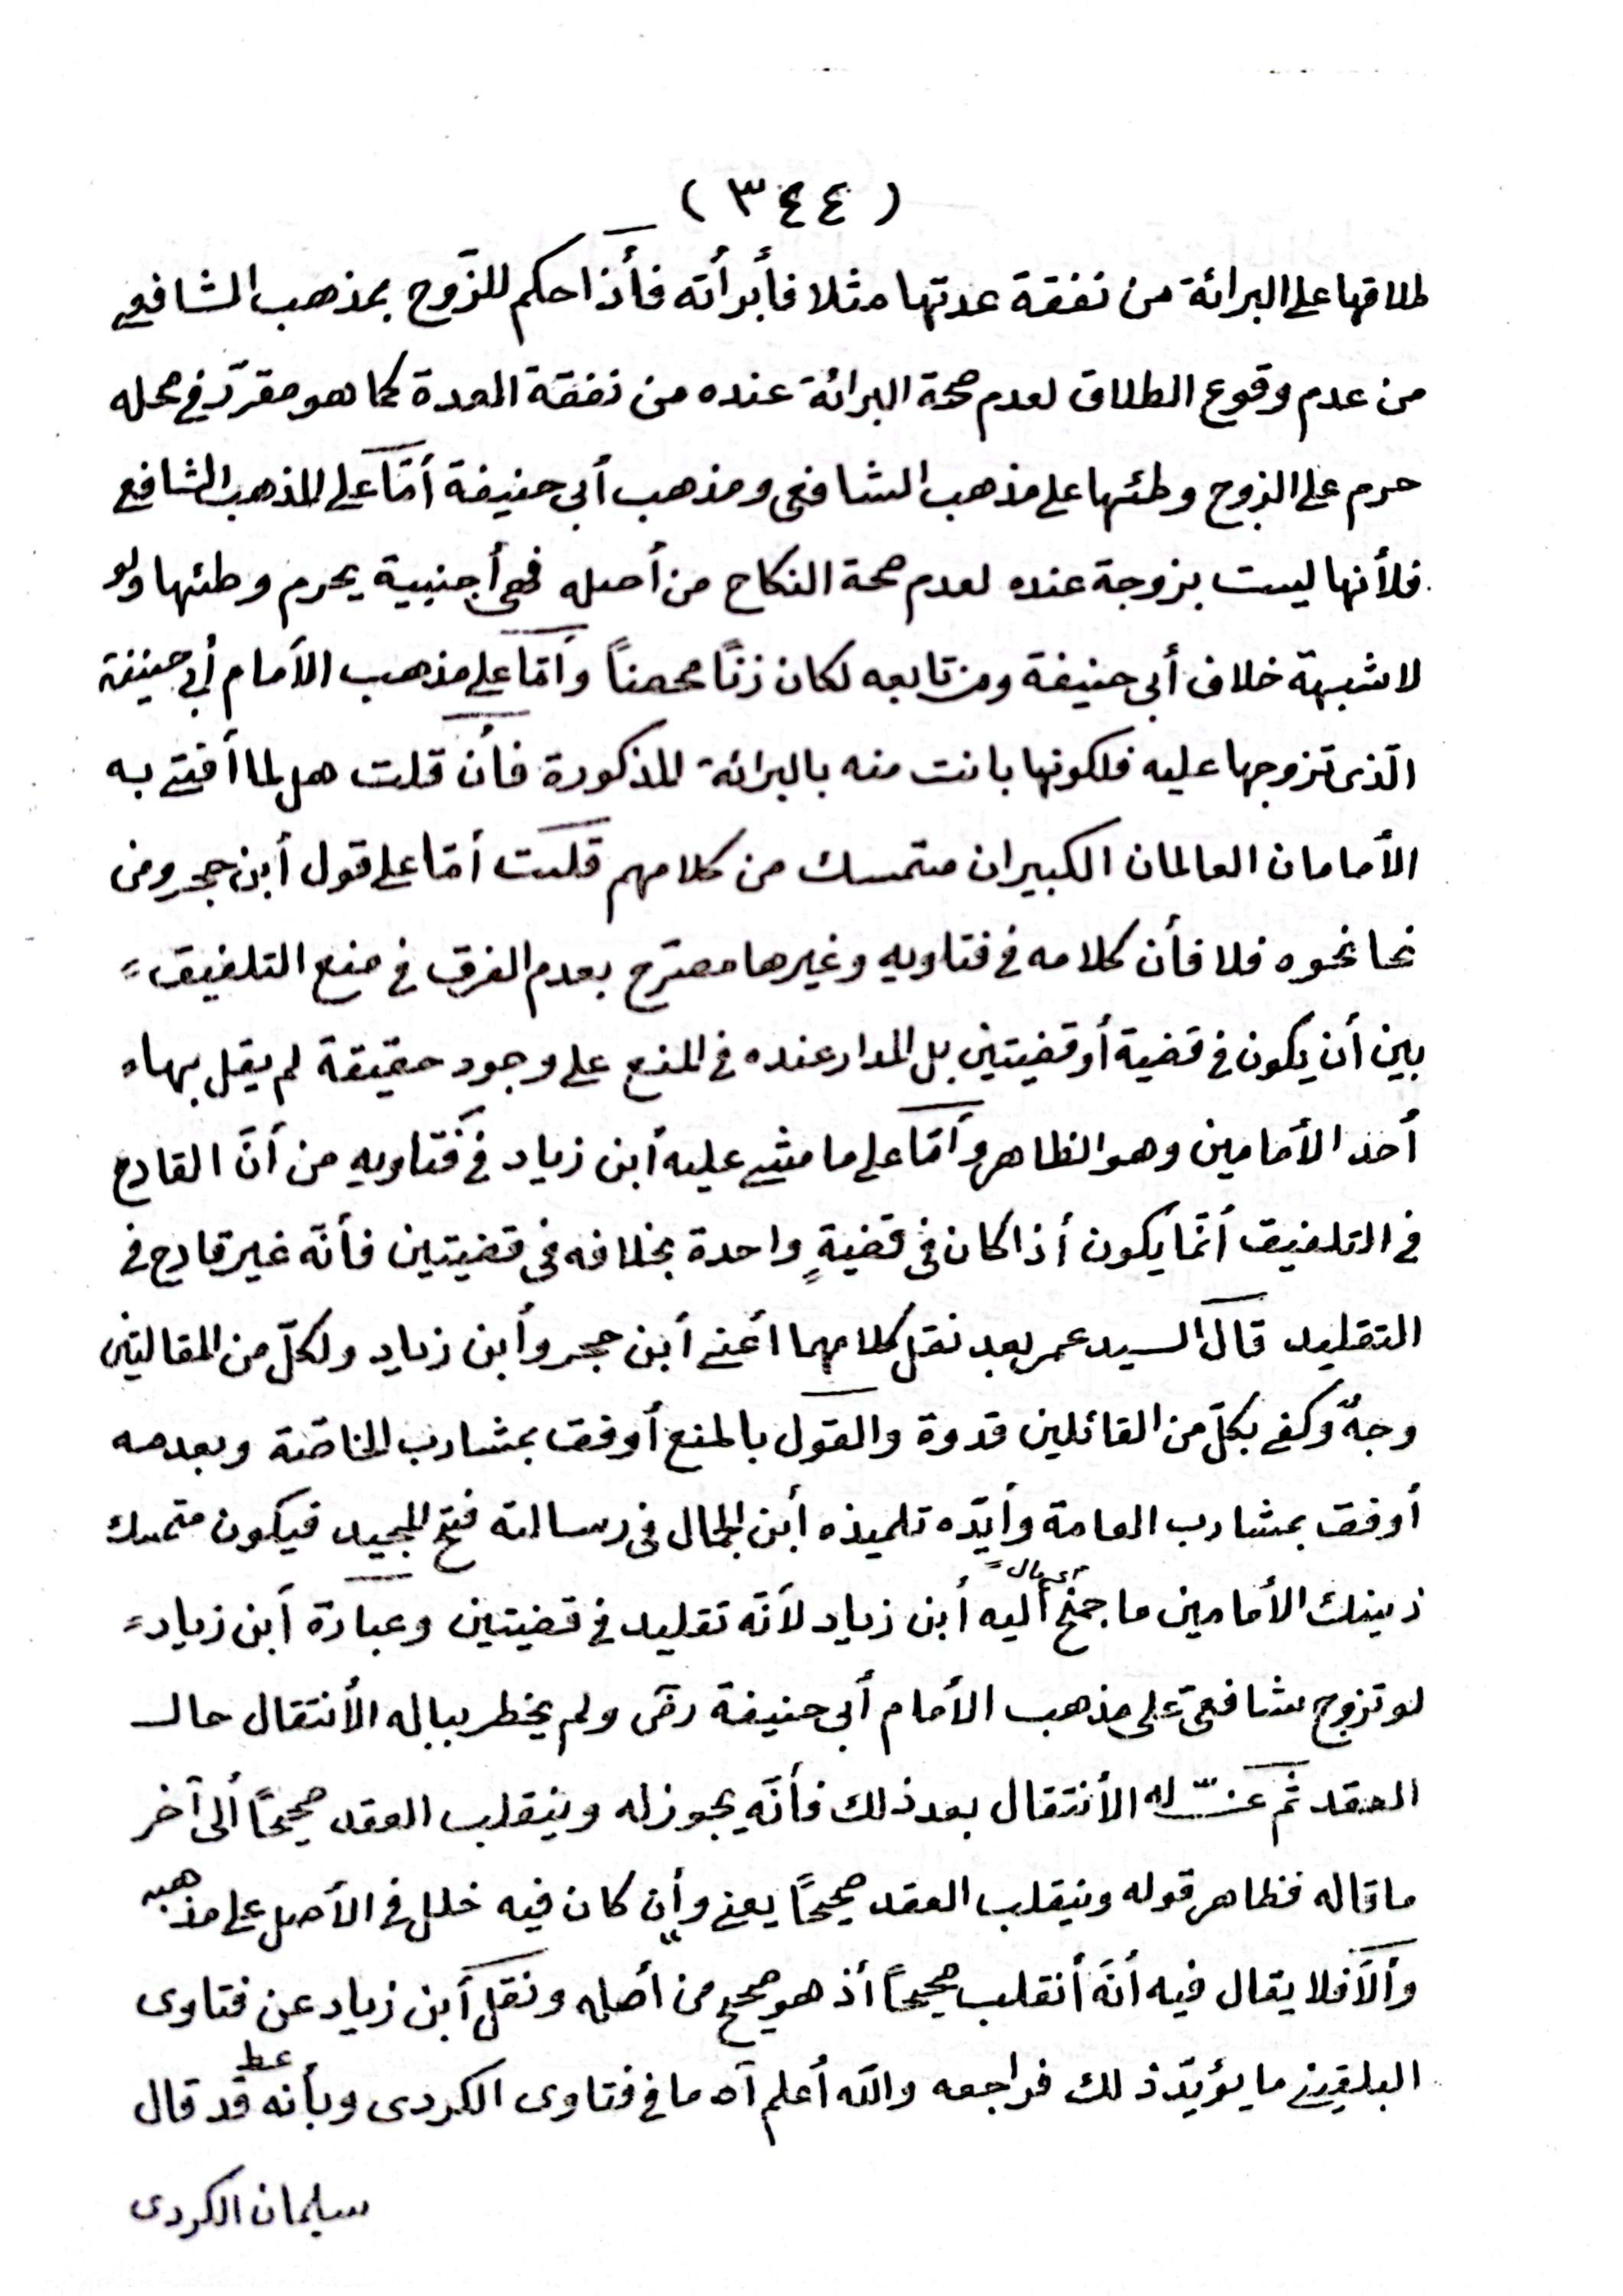 ( ٣٤٤ )
طلاقها على البرائة من نفقة عدتها مثلا فأبرأته فأذا حكم للزّوج بمذهب الشافعي
من عدم وقوع الطلاق لعدم صحة البرائة عنده من نفقة العدة كما هو مقرّر في محله
حرم على الزوج وطئها على مذهب الشافعي ومذهب أبي حنيفة أمّا على المذهب الشافعي
فلأنها ليست بزوجة عنده لعدم صحة النكاح من أصله فهي أجنبية يحرم وطئها ولو
لا شبهة خلاف أبي حنيفة ومن تابعه لكان زنًا محضاً وأمّا على مذهب الأمام أبي حنيفة
الّذي تزوجها عليه فلكونها بانت منه بالبرائة المذكورة فأن قلت هل لما أفتى به
الأمامان العالمان الكبيران متمسك من كلامهم قلت أمّا على قول أبن حجر ومن
نحا نحوه فلا فأن كلامه في فتاويه وغيرها مصرّح بعدم الفرق في منع التلفيق
بين أن يكون في قضية أو قضيتين بل المدار عنده في المنع على وجود حقيقة لم يقل بها
أحد الأمامين وهو الظاهر وأمّا على ما مشى عليه أبن زياد في فتاويه من أنّ القادح
في التلفيق أنّما يكون أذا كان في قضيةٍ واحدة بخلافه في قضيتين فأنّه غير قادح في
التقليد قال السيد عمر بعد نقل كلامهما أعني أبن حجر وأبن زياد ولكلّ من المقالتين
وجهٌ وكفى بكلّ من القائلين قدوة والقول بالمنع أوفق بمشارب الخاصّة وبعدمه
أوفق بمشارب العامة وأيّده تلميذه أبن الجمال في رسالته فتح المجيد فيكون متمسك
ذينك الأمامين ما جمنح أليه أبن زياد لأنّه تقليد في قضيتين وعبارة أبن زياد
أى مال
لو تزوج شافعيّ على مذهب الأمام أبي حنيفة رضى ولم يخطر بباله الأنتقال حال
العقد ثمّ عنّ له الأنتقال بعد ذلك فأنّه يجوز له وينقلب العقد صحيحًا ألى آخر
ما قاله فظاهر قوله وينقلب العقد صحيحًا يعني وأن كان فيه خلل في الأصل على مذهبه
وألّا فلا يقال فيه أنّه أنقلب صحيحاً أذ هو صحيح من أصله ونقل أبن زياد عن فتاوى
البلقيني ما يؤيّد ذلك فراجعه والله أعلم آه ما في فتاوى الكردى وبأنه قد قال
عط
سليمان الكردى